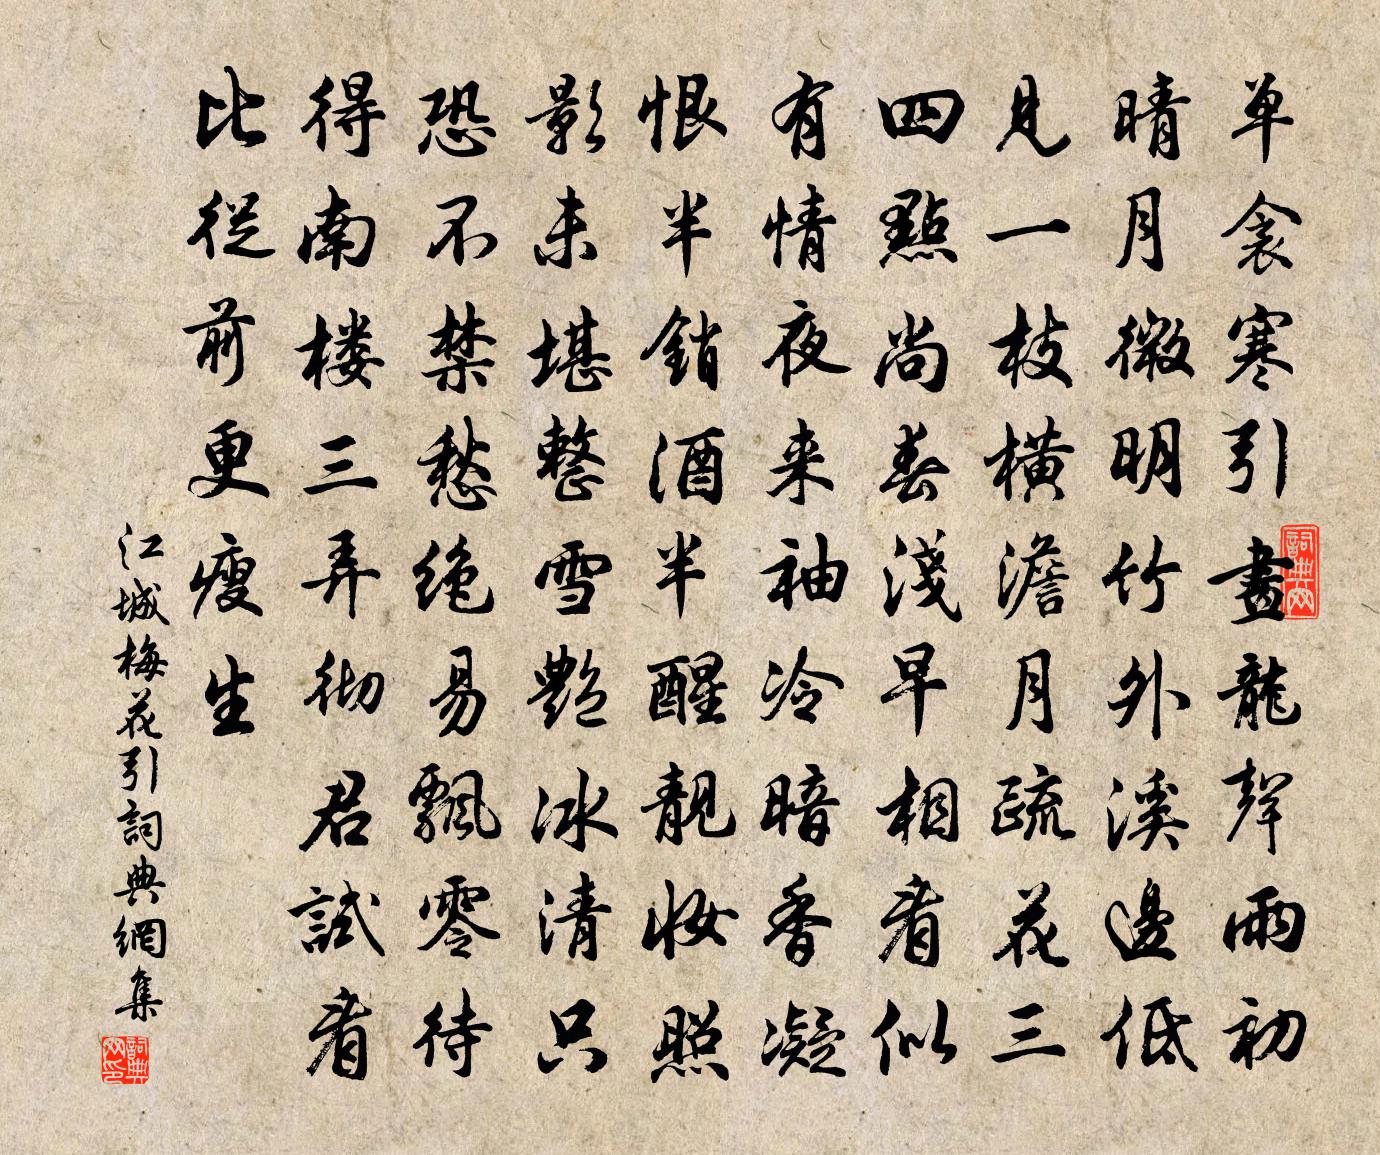 单衾寒引畫龍聲雨初
晴月微明竹外溪邊低
見一枝橫澹月疏花三
四點尚春淺早相看似
有情夜来袖冷暗香凝
恨半銷酒半醒靚妝照
影未堪整雪艷冰清只
恐不禁愁絶易飄零待
得南楼三弄彻君試看
比從前更瘦生
江城梅花引詞典網集
詞典网
詞典网印